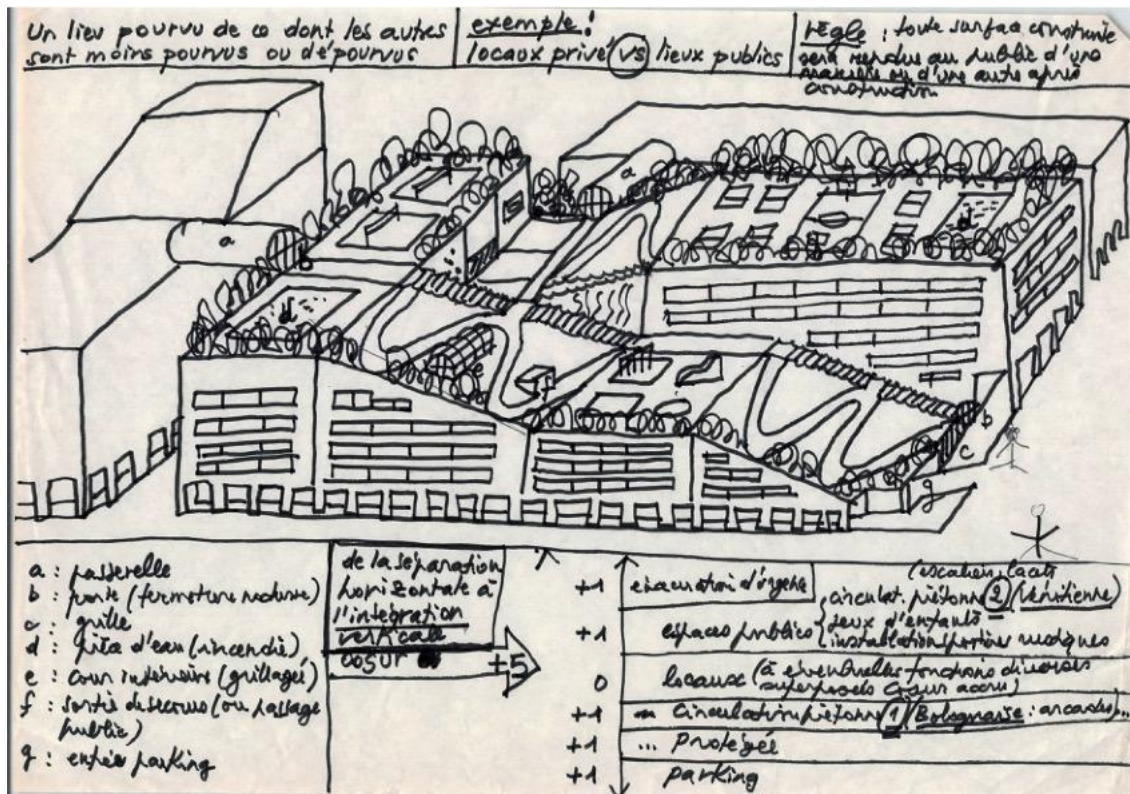 Un lieu pourvu de co dont les autres
sont moins pourvus ou dépourvus
exemple:
locaux privé vs lieux publics
règle : toute surface construite
sera rendue au public d'une
manière ou d'une autre après
construction
a
b
a
d
d
e
f
b
c
g
a : passerelle
b : porte (fermeture nocturne)
c : grille
d : pièce d'eau (incendie)
e : cour intérieure (grillagée)
f : sortie de secours (ou passage
public)
g : entrée parking
de la séparation
horizontale à
l'intégration
verticale
+5
+1 évacuation d'urgence
(escaliers, lacets
circulat. piétonne 2 (Vénitienne)
+1 espaces publics jeux d'enfants
0 locaux (à éventuelles fonctions diverses
superposés
+1 circulation piétonne 1 (Bolognaise : arcades)...
+1 ... protégée
+1 parking